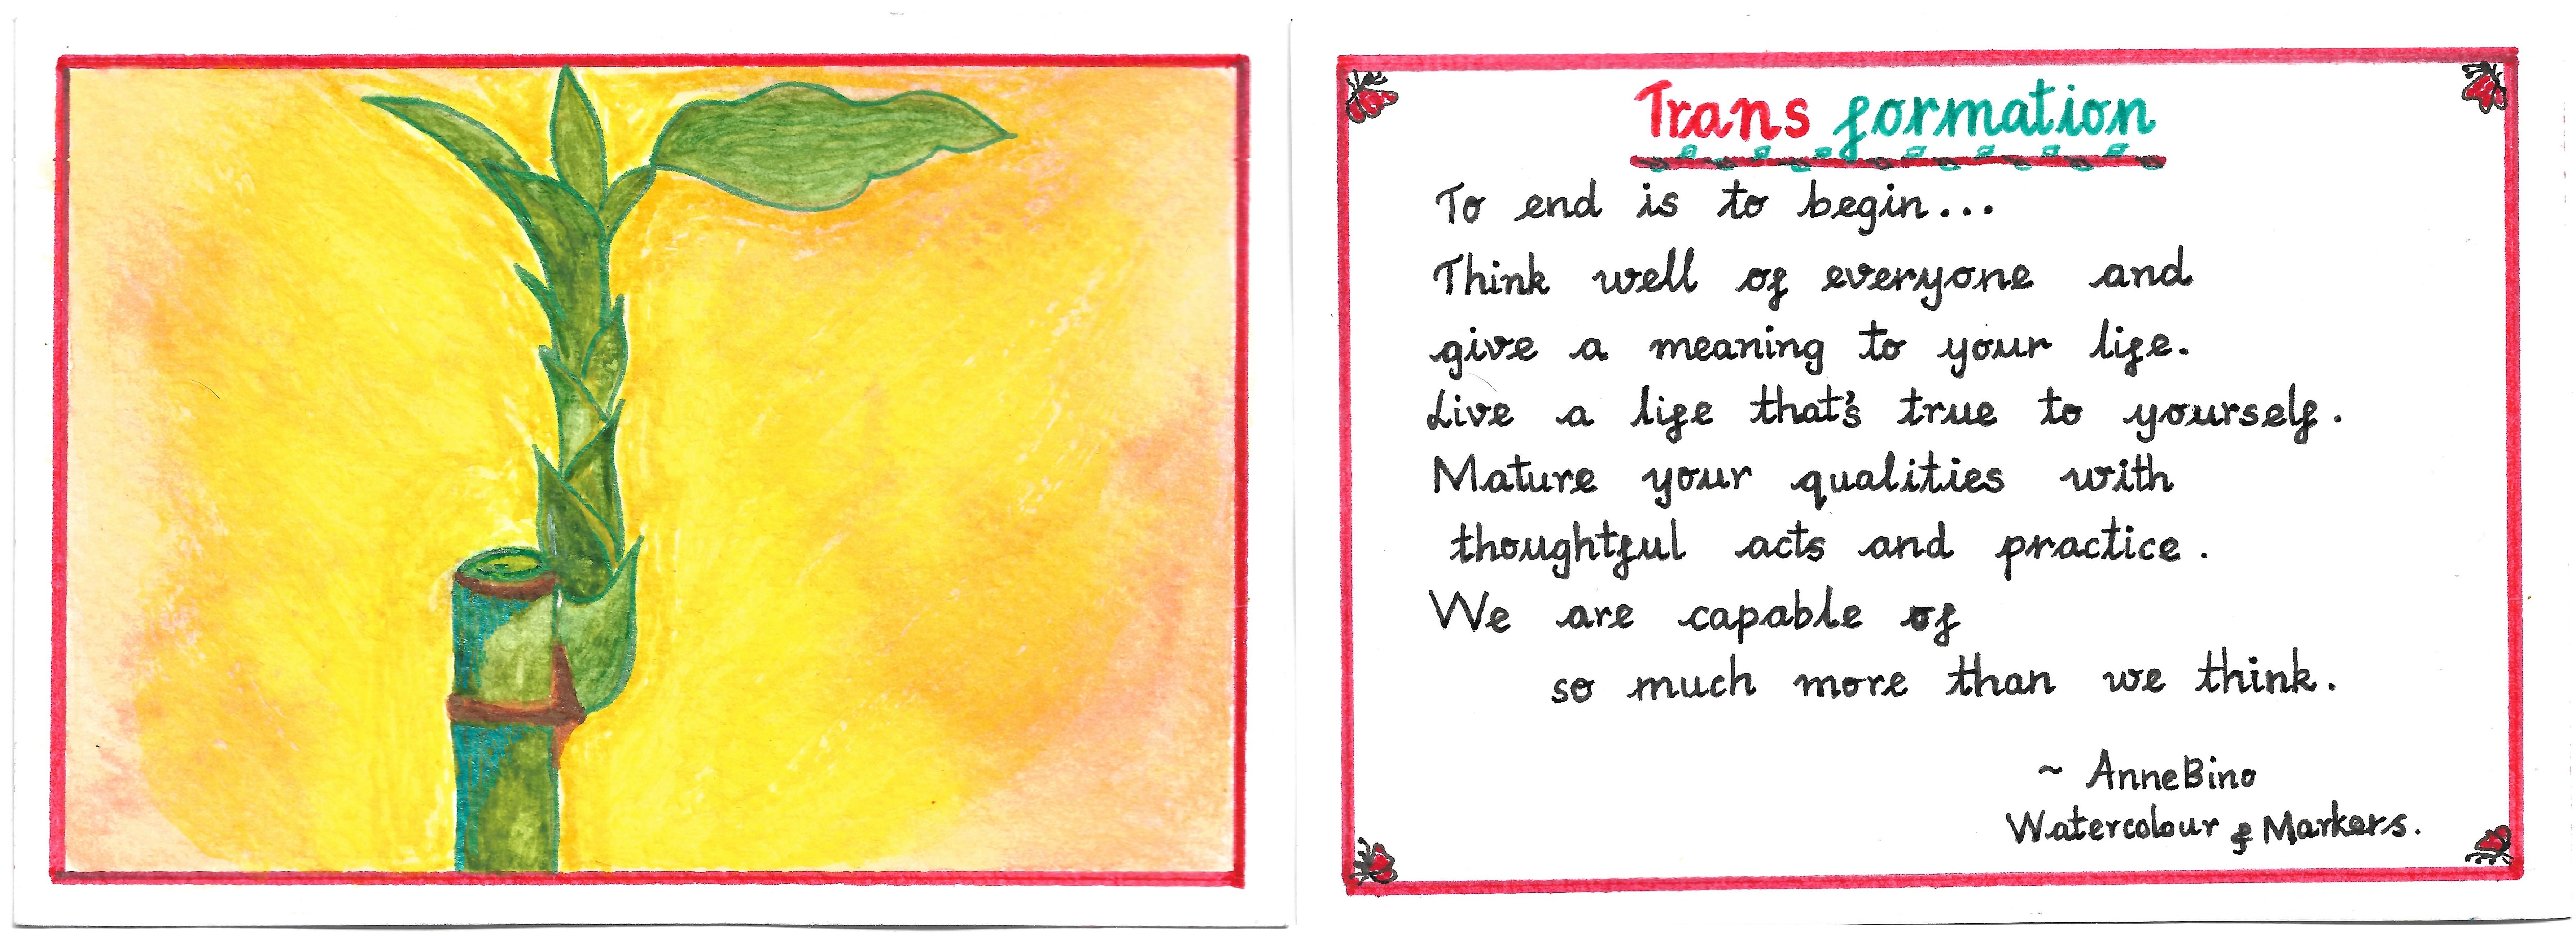 Trans formation
To end is to begin...
Think well of everyone and
give a meaning to your life.
Live a life that's true to yourself.
Mature your qualities with
thoughtful acts and practice.
We are capable of
so much more than we think.
~ AnneBino
Watercolour & Markers.